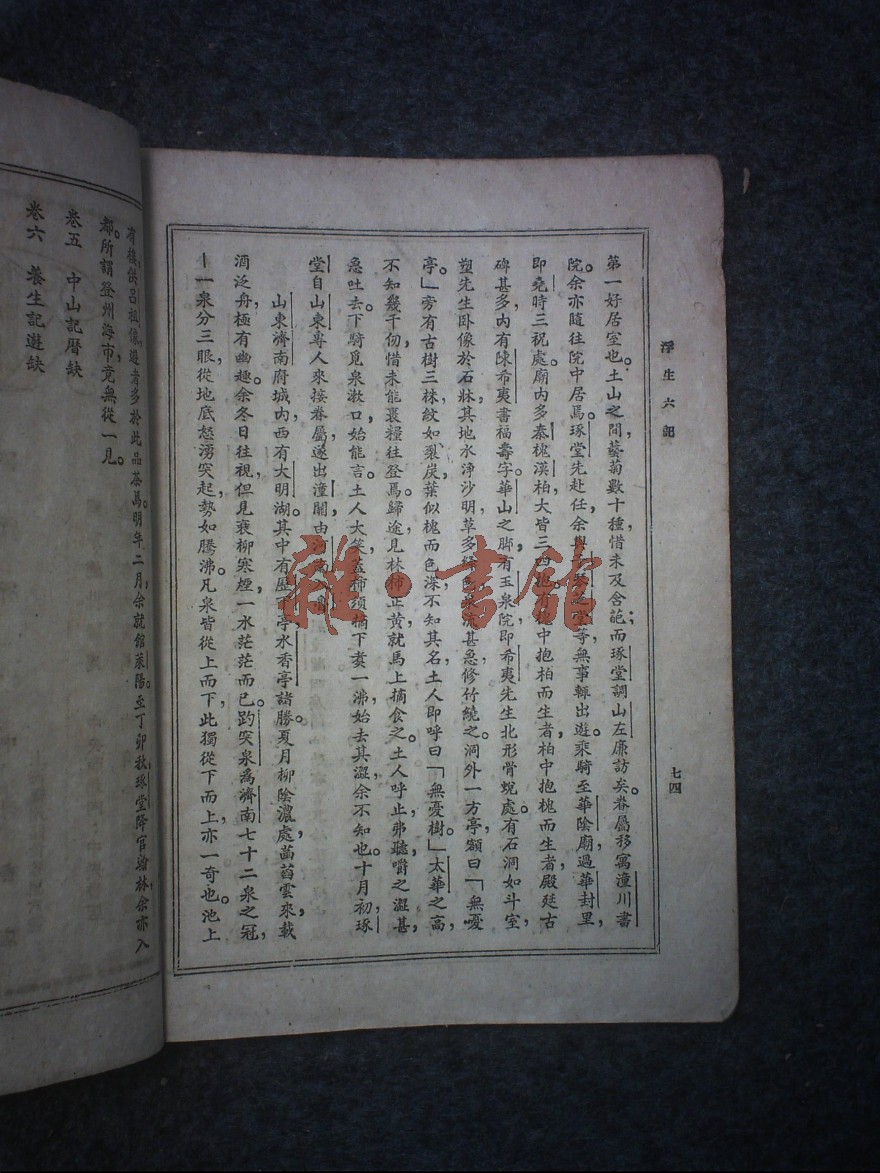 浮生六記
七四
第一好居室也。土山之間，藝菊數十種，惜未及含葩；而琢堂調山左廉訪矣。眷屬移寓潼川書
院。余亦隨往院中居焉。琢堂先赴任，余與芝堂等，無事輒出遊。乘騎至華陰廟，過華封里，
即堯時三祝處。廟內多秦槐漢柏，大皆三四抱。槐中抱柏而生者，柏中抱槐而生者，殿廷古
碑甚多，內有陳希夷書福壽字。華山之脚有玉泉院，即希夷先生北形骨蛻處。有石洞如斗室，
塑先生卧像於石牀，其地水淨沙明，草多絳色，泉流甚急，修竹繞之。洞外一方亭，額曰「無憂
亭。」旁有古樹三株，紋如裂炭，葉似槐而色深，不知其名，土人即呼曰「無憂樹。」太華之高，
不知幾千仞，惜未能裹糧往登焉。歸途見林柿正黃，就馬上摘食之，土人呼止，弗聽，嚼之澀甚，
急吐去，下騎覓泉漱口，始能言。土人大笑，蓋柿須摘下煑一沸，始去其澀，余不知也。十月初，琢
堂自山東專人來接眷屬，遂出潼關，由河南
山東濟南府城內，西有大明湖。其中有歷下亭，水香亭諸勝。夏月柳陰濃處，菡萏雲來，載
酒泛舟，極有幽趣。余冬日往視，但見衰柳寒煙，一水茫茫而已。趵突泉爲濟南七十二泉之冠，
—一泉分三眼，從地底怒湧突起，勢如騰沸。凡泉皆從上而下，此獨從下而上，亦一奇也。池上
有樓，供呂祖像，遊者多於此品茶焉。明年二月，余就館萊陽。至丁卯秋，琢堂降官翰林，余亦入
都。所謂登州海市，竟無從一見。
卷五 中山記曆缺
卷六 養生記遊缺
雜·書館